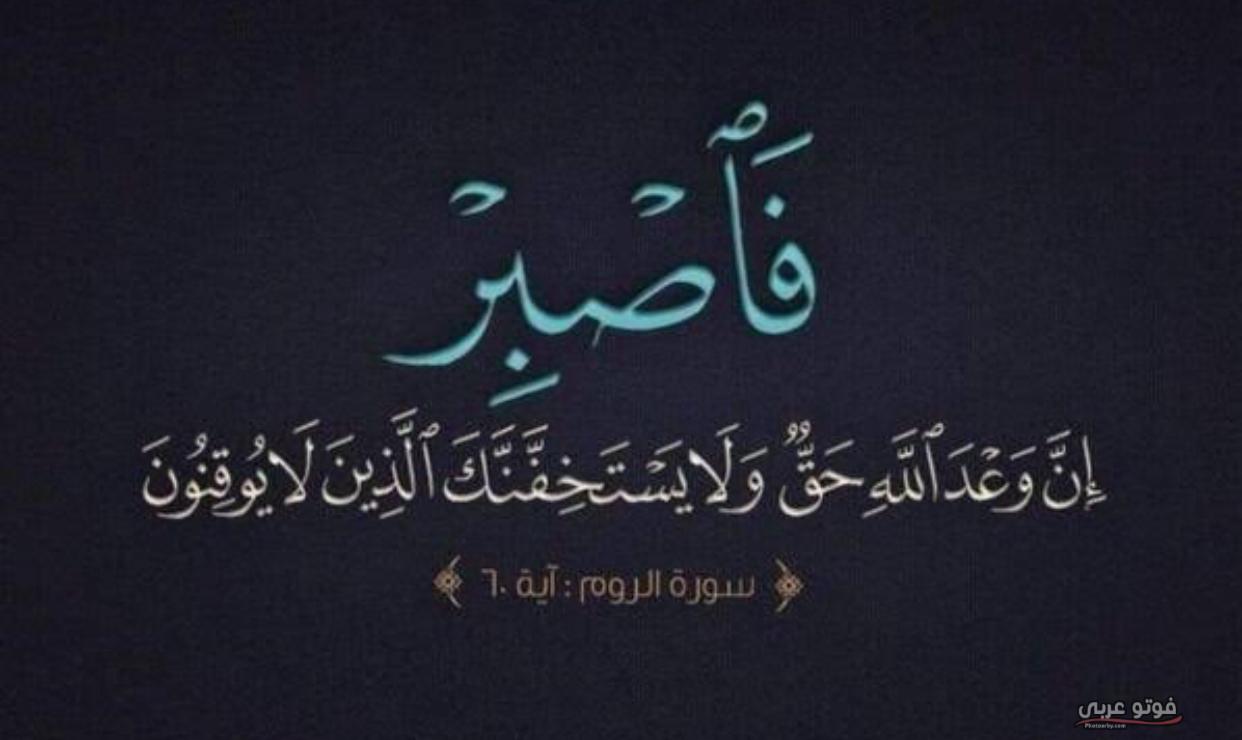 فَٱصْبِرْ
إِنَّ وَعْدَ ٱللَّهِ حَقٌّ وَلَا يَسْتَخِفَّنَّكَ ٱلَّذِينَ لَا يُوقِنُونَ
سورة الروم : آية ٦٠
فوتو عربي
Photoarby.com